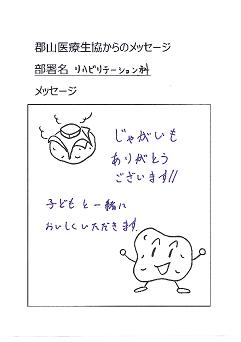 郡山医療生協からのメッセージ
部署名 リハビリテーション科
メッセージ
じゃがいも
ありがとう
ございます!!
子どもと一緒に
おいしくいただきます。